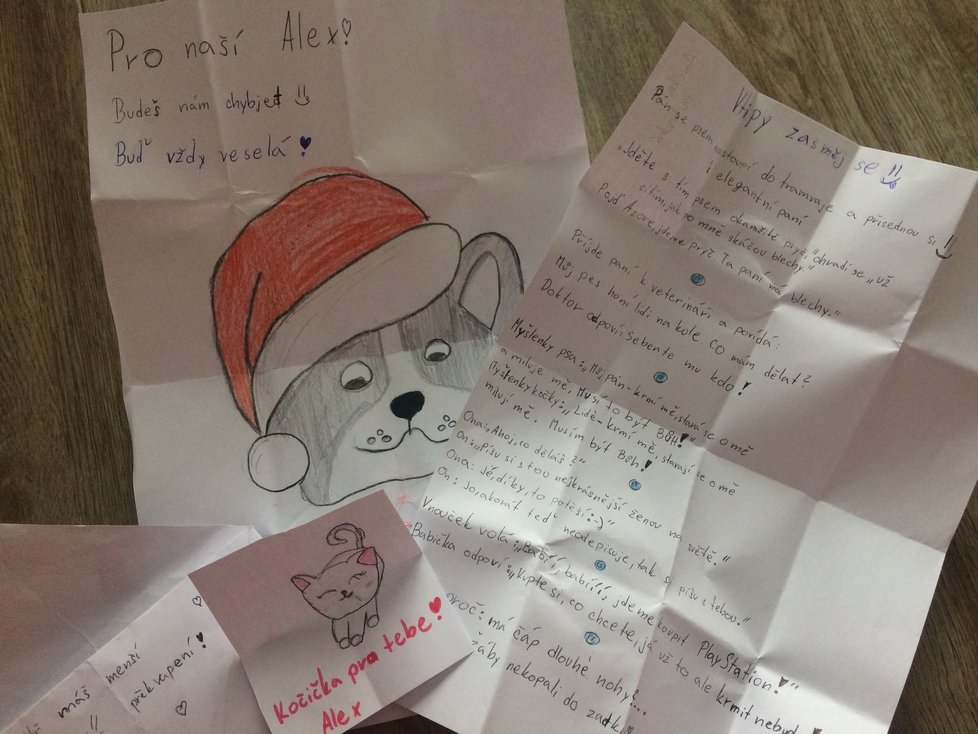 Pro naší Alex!
Budeš nám chybjet
Buď vždy veselá!
Vtipy zasměj se !!
Pán se psem nastoupí do tramvaje a přisednou si !!
l elegantní paní
„Jděte s tím psem okamžitě pryč," ohradí se „už
cítím, jak po mně skáčou blechy."
Pojď Azore, jdeme pryč. Ta paní má blechy."
Příjde paní k veterináři a povídá:
Můj pes honí lidi na kole. Co mám dělat?
Doktor odpoví: seberte mu kolo!
Myšlenky psa: „Můj pán - krmí mě, stará se o mě
a miluje mě, Musí to být Bůh!"
Myšlenky kočky: „Lidé - krmí mě, starají se o mě
milují mě. Musím být Bůh!
Ona: „Ahoj, co děláš?"
On: „Píšu si s tou nejkrásnější ženou na světě."
Ona: Jé, díky, to potěší :-)"
On: Jo, akorát teď neodepisuje, tak si píšu s tebou."
Vnouček volá: „Babííí, babííí, jdeme koupit PlayStation!"
Babička odpoví: „Kupte si, co chcete, já už to ale krmit nebudu!
proč: má čáp dlouhé nohy?...
žáby nekopali do zadku!
máš menší
překvapení!
Kočička pro tebe!
Alex